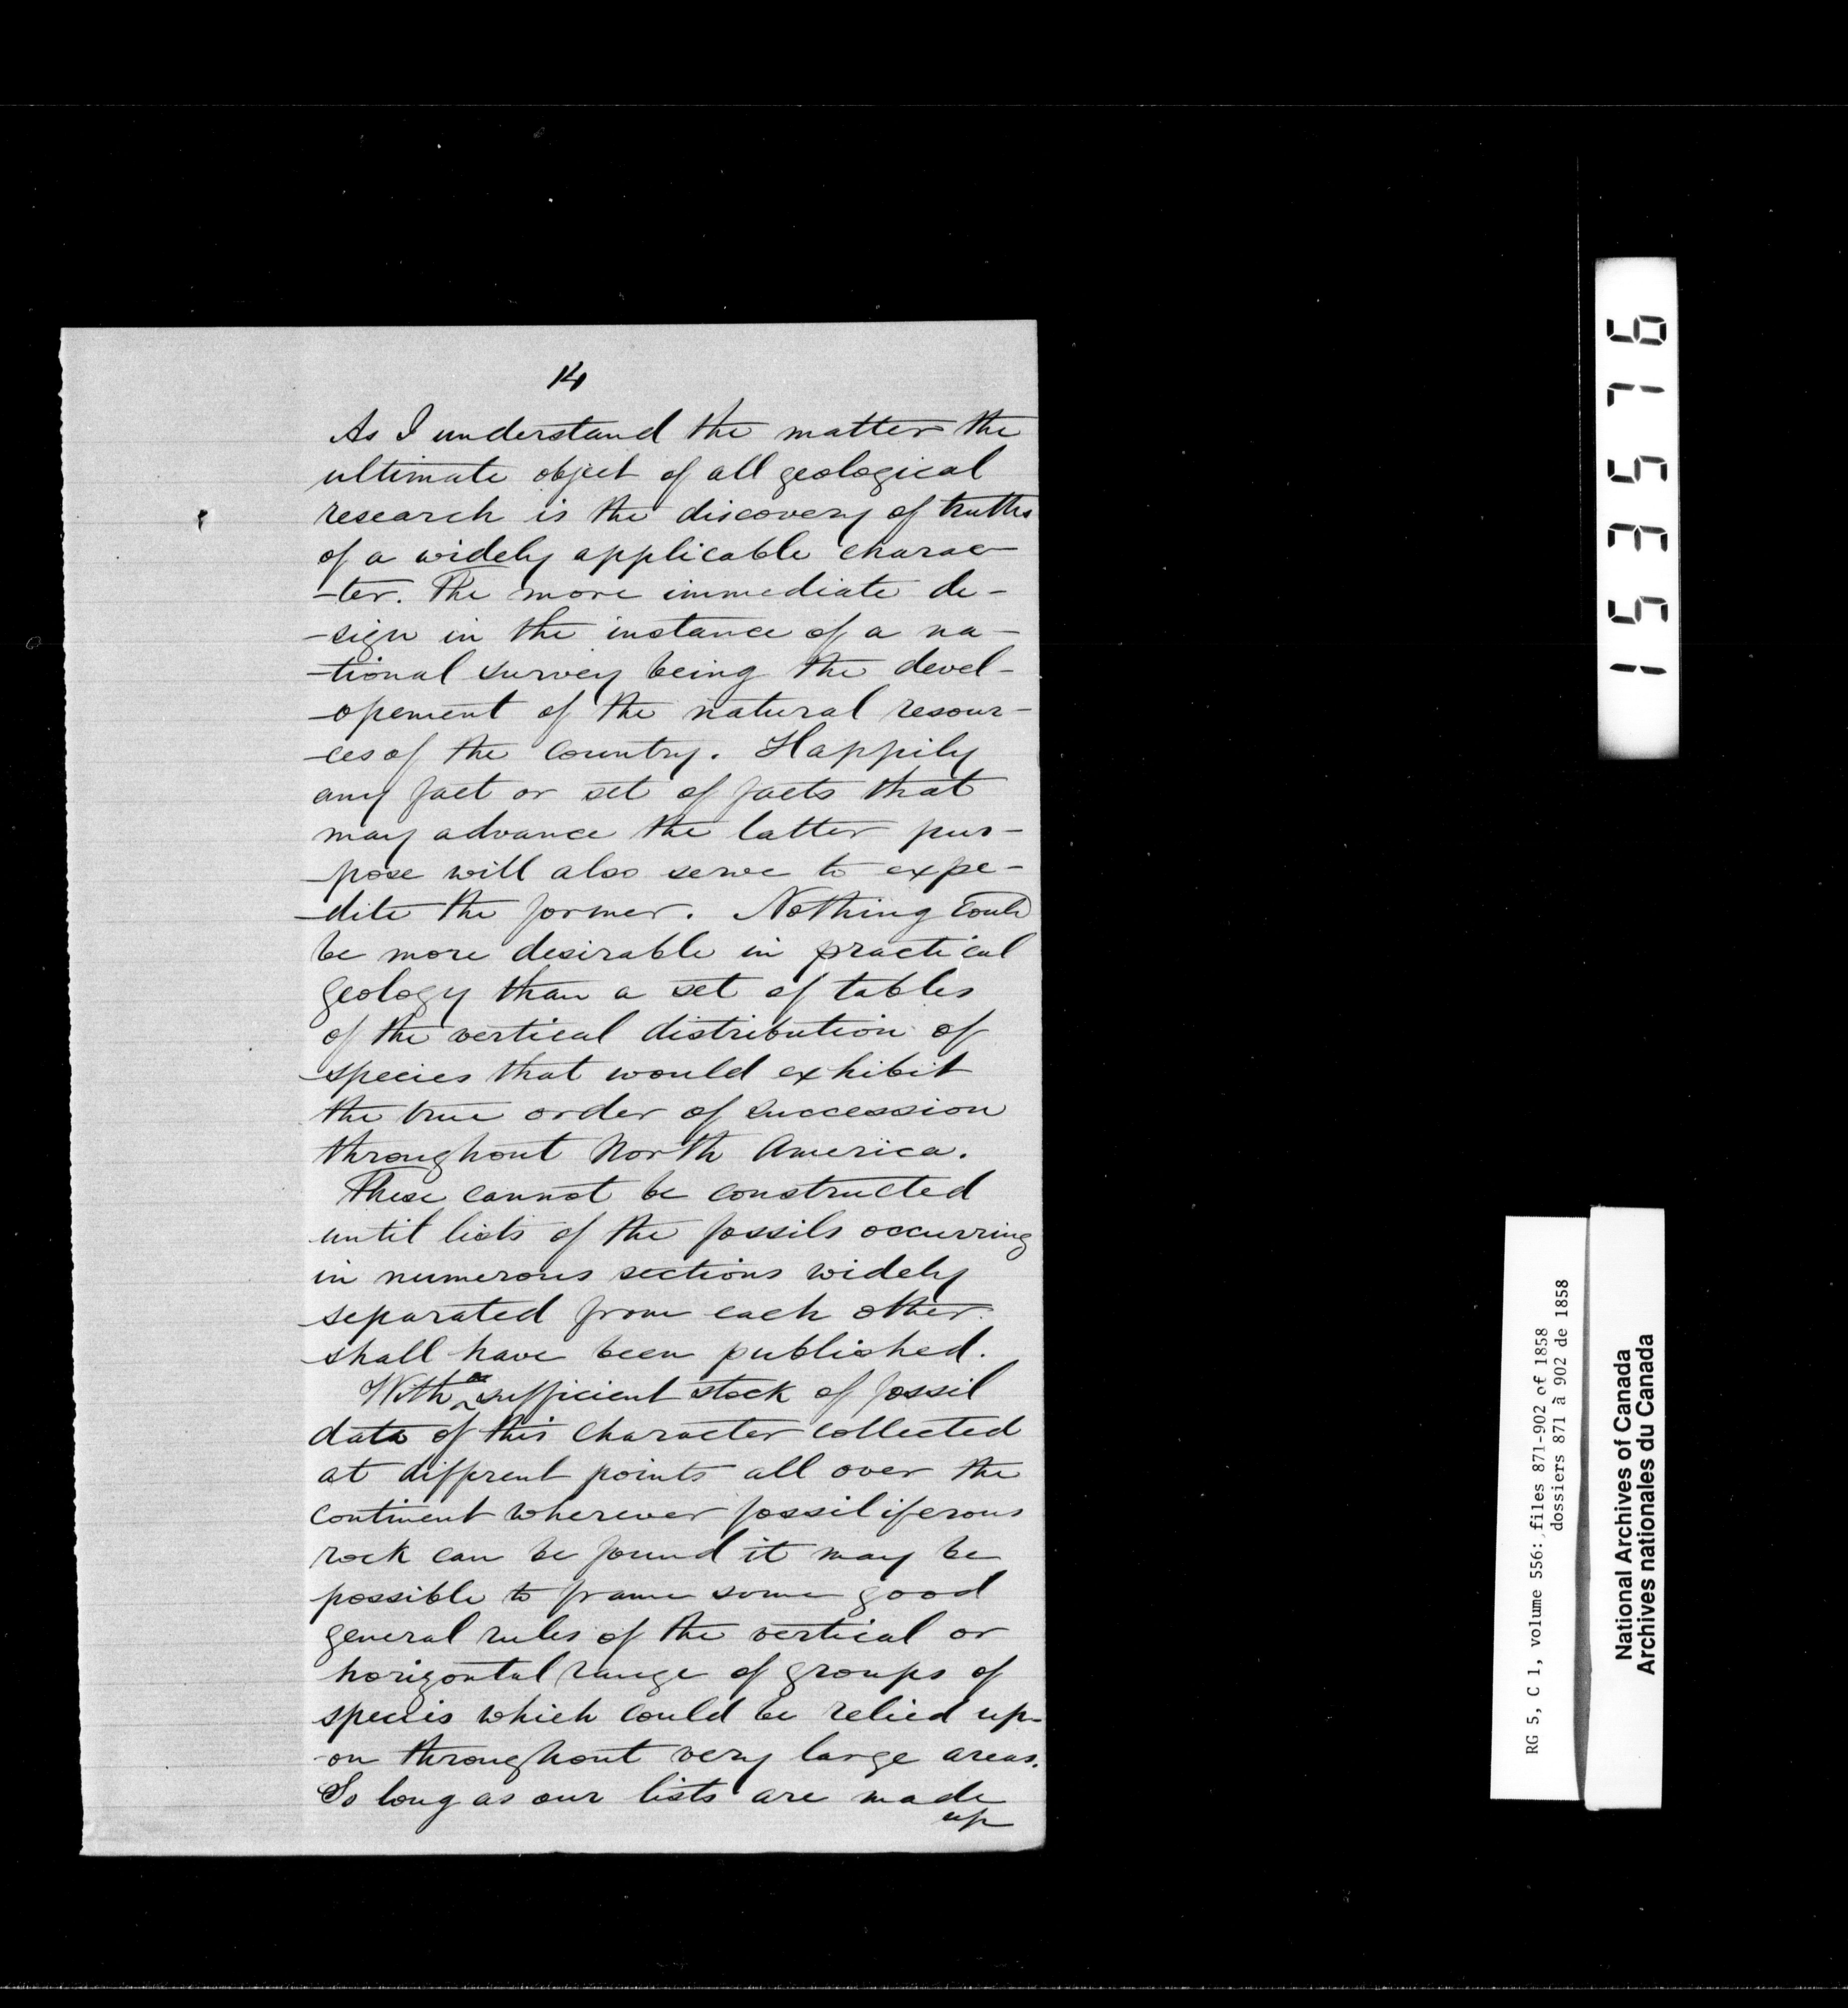 14
As I understand the matter the
ultimate object of all geological
research is the discovery of truths
of a widely applicable charac-
-ter. The more immediate de-
-sign in the instance of a na-
-tional survey being the devel-
-opement of the natural resour-
-ces of the country. Happily
any fact or set of facts that
may advance the latter pur-
-pose will also serve to expe-
-dite the former. Nothing could
be more desirable in practical
geology than a set of tables
of the vertical distribution of
species that would exhibit
the true order of succession
throughout North America.
These cannot be constructed
until lists of the fossils occurring
in numerous sections widely
separated from each other
shall have been published.
With a sufficient stock of fossil
data of this character collected
at different points all over the
continent wherever fossiliferous
rock can be found it may be
possible to frame some good
general rules of the vertical or
horizontal range of groups of
species which could be relied up-
-on throughout very large areas.
So long as our lists are made
up
153576
RG 5, C 1, volume 556: files 871-902 of 1858
dossiers 871 à 902 de 1858
National Archives of Canada
Archives nationales du Canada